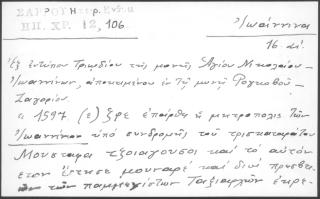 ΗΠ. ΧΡ. 12, 106.
Ἰωάννινα
16 αἰ.
Ἐξ ἐντύπου Τριῳδίου τῆς μονῆς Ἁγίου Νικολάου
Ἰωαννίνων, ἀποκειμένου ἐν τῇ μονῇ Ρογκοβοῦ
Ζαγορίου.
1597 (ε) ἔτει ἐπάρθη ἡ μητρόπολις τῶν
Ἰωαννίνων ὑπό συνδρομῆς τοῦ τρισκαταράτου
Μουσταφᾶ τζοϊάγουση καί τό αὐτόν
ἔτον ἔστησε μουναρέ καί διά πρεσβει
τῶν παμμεγίστων Ταξιαρχῶν ἐκρε-